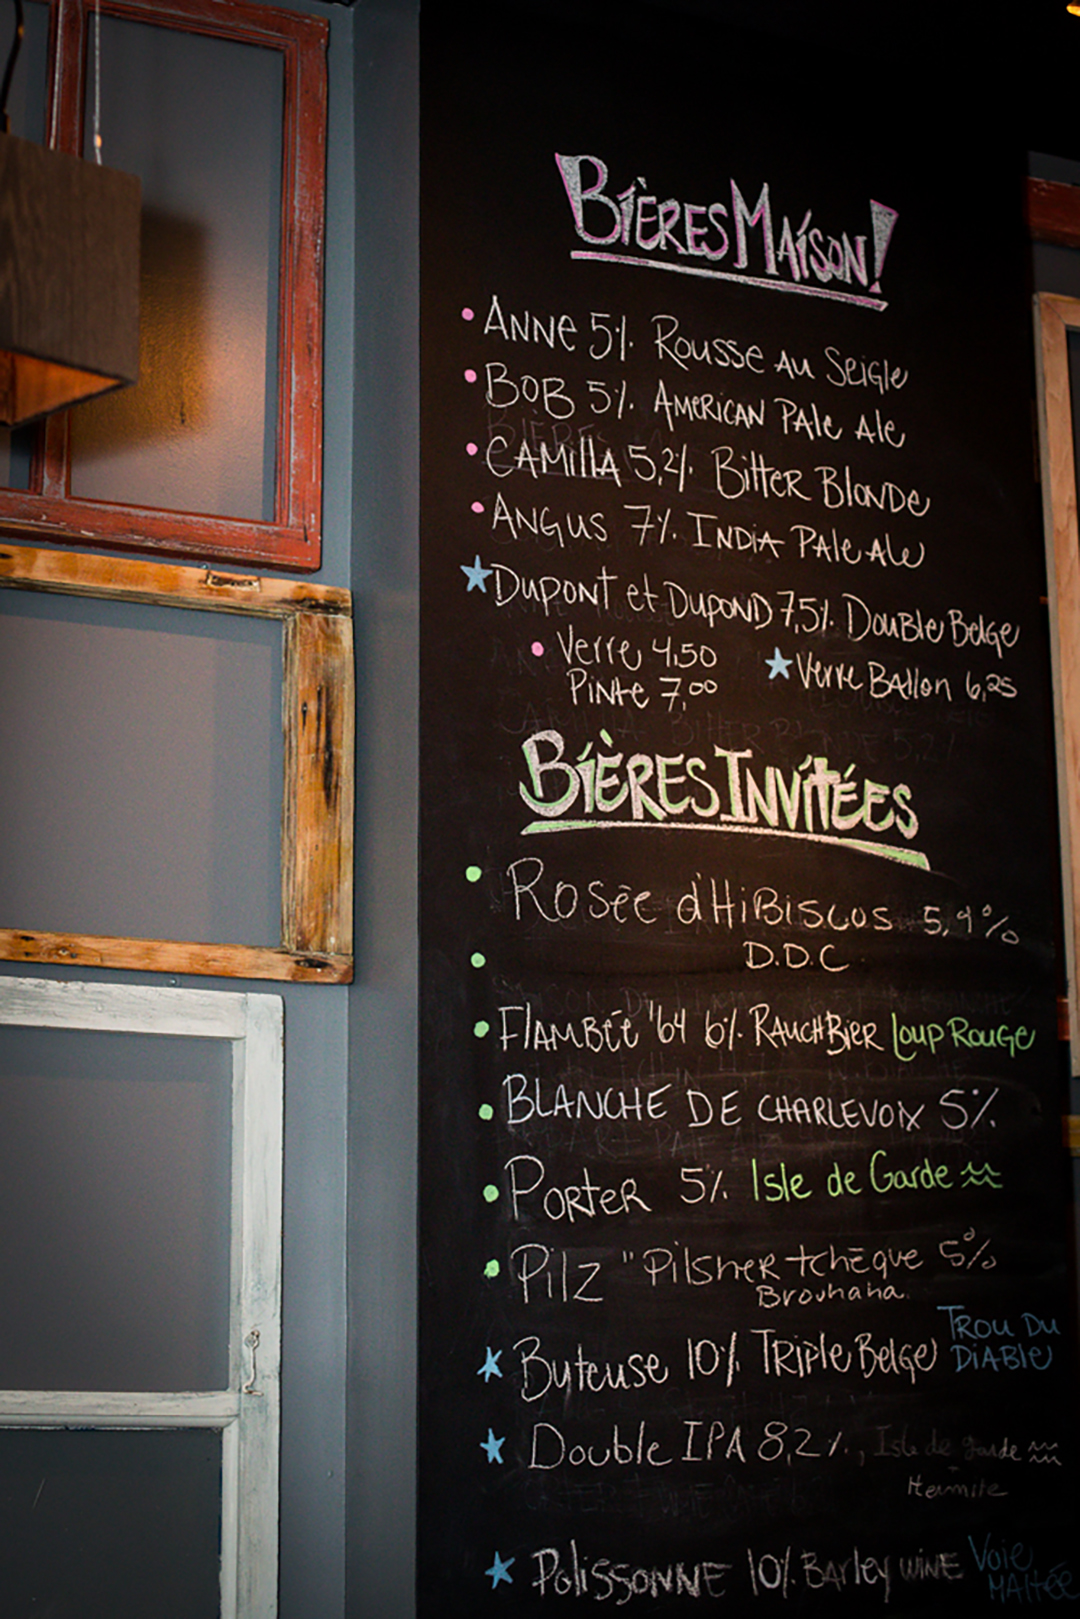 BIÈRES MAISON!
ANNE 5% ROUSSE AU SEIGLE
BOB 5% AMERICAN PALE ALE
CAMILLA 5,2% BITTER BLONDE
ANGUS 7% INDIA PALE ALE
DUPONT et DUPOND 7,5% DOUBLE BELGE
Verre 4,50
Verre Ballon 6,25
Pinte 7,00
BIÈRES INVITÉES
ROSÉE d'HIBISCUS 5,9%
D.D.C
FLAMBÉE '64 6% RAUCHBIER LOUP ROUGE
BLANCHE DE CHARLEVOIX 5%
PORTER 5% Isle de Garde
PILZ "PILSNER tchèque 5%
Brouhaha
Buteuse 10% TRIPLE BELGE TROU DU DIABLE
Double IPA 8,2%, Isle de garde
+ Hermite
POLISSONNE 10% BARLEY WINE Voie MALTÉE